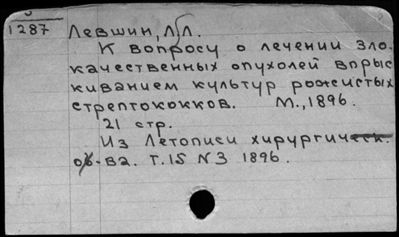 1287 Левшин, Л.Л.
К вопросу о лечении зло
качественных опухолей впрыс
киванием культур рожистых
стрептококков. М., 1896.
21 стр.
Из Летописи хирургическ.
об-ва. Т.15 N3 1896.